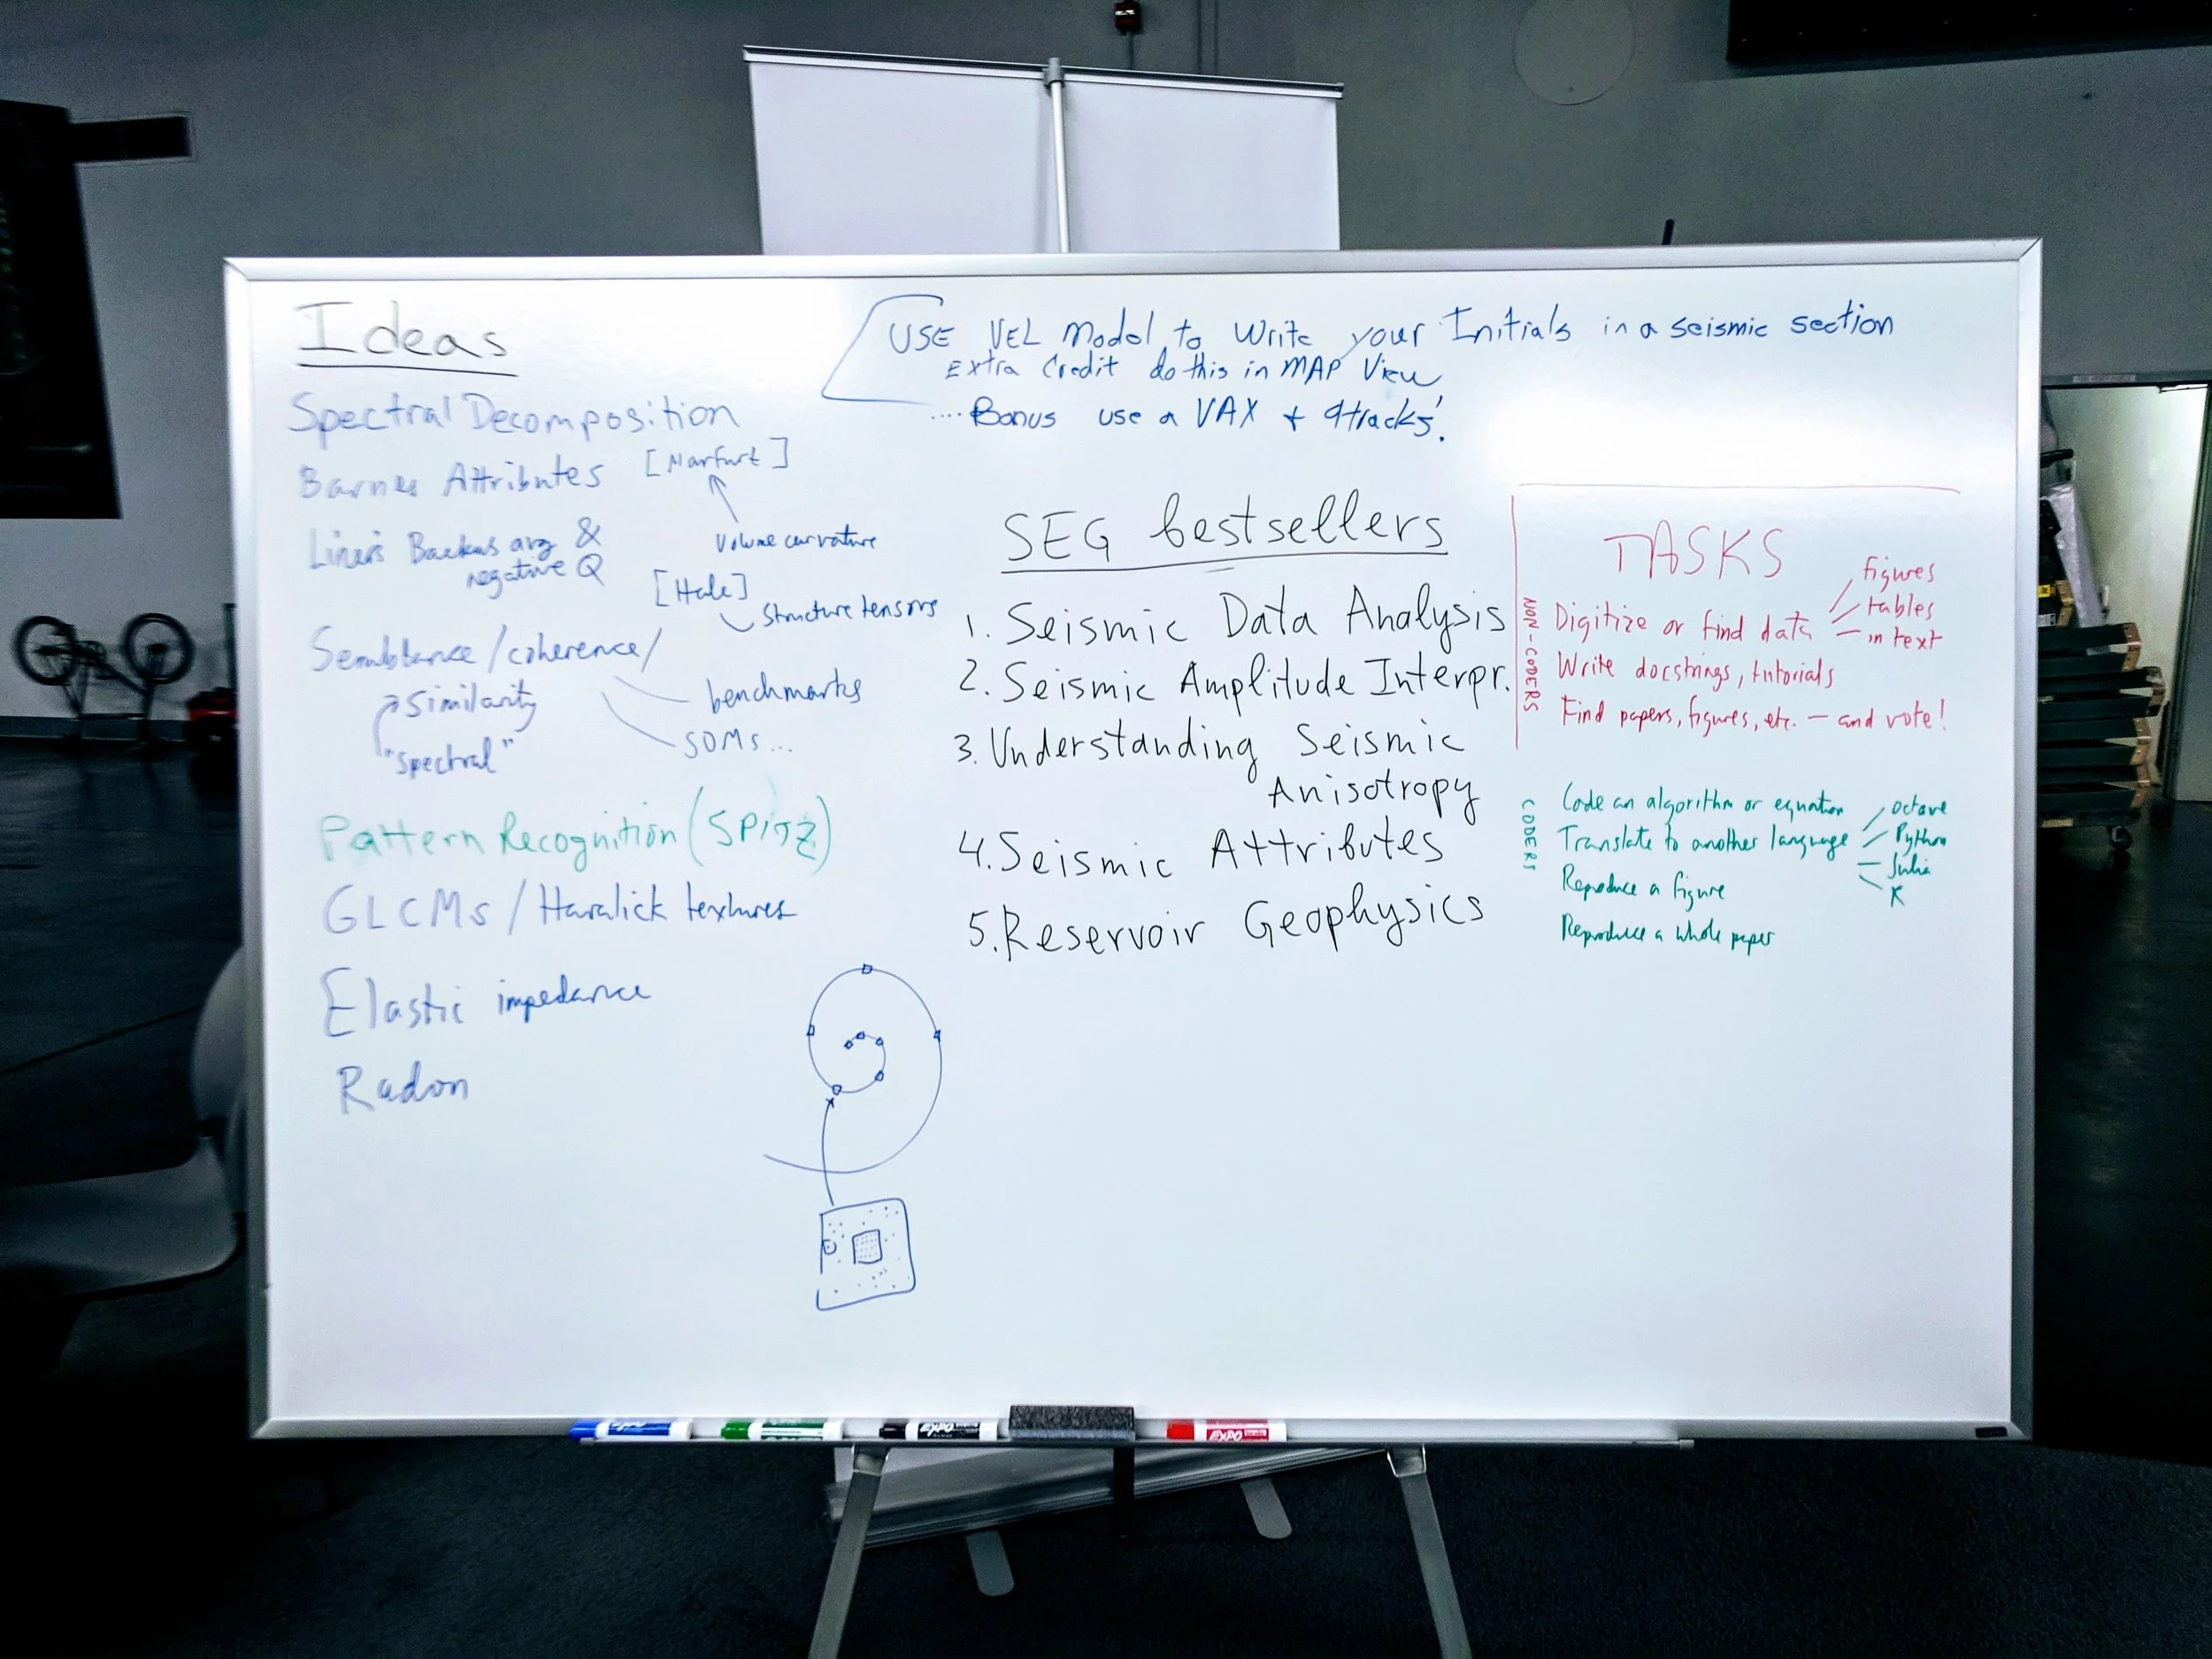 Ideas
Spectral Decomposition
Barnes Attributes [Marfurt]
Volume curvature
Liner's Backus avg &
negative Q
[Hale]
Structure tensors
Semblance/coherence/
similarity
"spectral"
benchmarks
SOMs...
Pattern Recognition (SPITZ)
GLCMs / Haralick textures
Elastic impedance
Radon
USE VEL Model to Write your Initials in a seismic section
Extra Credit do this in MAP View
.... Bonus use a VAX + 9tracks!
SEG bestsellers
1. Seismic Data Analysis
2. Seismic Amplitude Interpr.
3. Understanding Seismic
Anisotropy
4. Seismic Attributes
5. Reservoir Geophysics
TASKS
NON-CODERS
Digitize or find data
figures
tables
in text
Write docstrings, tutorials
Find papers, figures, etc. — and vote!
CODERS
Code an algorithm or equation
Translate to another language
Octave
Python
Julia
R
Reproduce a figure
Reproduce a whole paper
EXPO
EXPO
EXPO